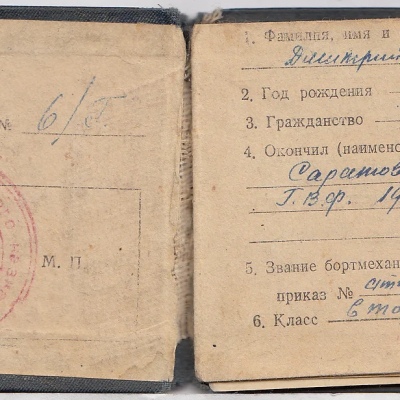 № 6/Б.
М. П.
1. Фамилия, имя и
Дмитрий
2. Год рождения
3. Гражданство
4. Окончил (наимено
Саратов
Г.В.Ф. 19
5. Звание бортмехан
приказ №
6. Класс вто